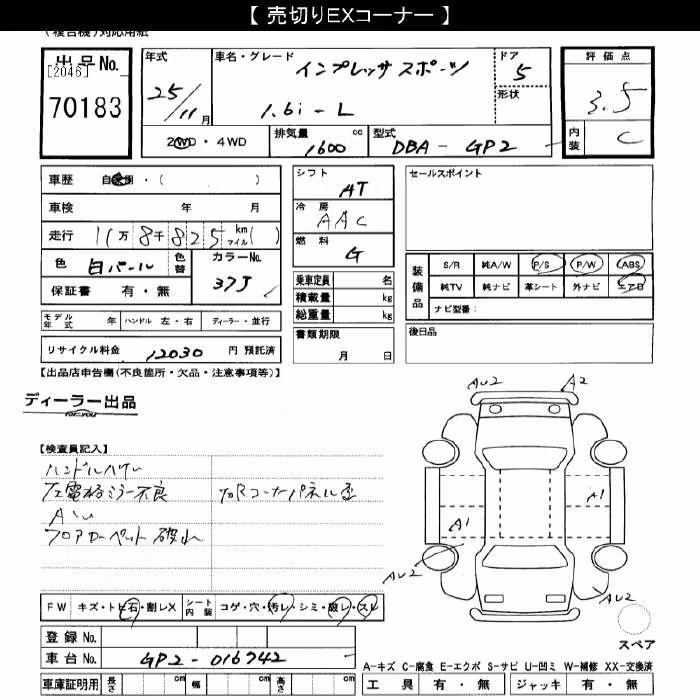 【 売切りEXコーナー 】
(複合機)対応用紙
出品No.
[2046]
70183
年式
25/11月
車名・グレード
インプレッサスポーツ
1.6i-L
ドア
5
形状
評価点
3.5
内装
C
2WD・4WD
排気量 1600 cc
型式 DBA-GP2
車歴 自家用・( )
車検 年 月
走行 11万8千825km マイル( )
色 白パール
色替
カラーNo.
37J
保証書 有・無
シフト
AT
冷房
AAC
燃料
G
セールスポイント
装備品
S/R 純A/W P/S P/W ABS
純TV 純ナビ 革シート 外ナビ エアB
ナビ型番:
乗車定員 名
積載量 kg
総重量 kg
モデル年式 年 ハンドル 左・右 ディーラー・並行
書類期限
月 日
後日品
リサイクル料金 12030 円 預託済
【出品店申告欄(不良箇所・欠品・注意事項等)】
ディーラー出品
for you
【検査員記入】
ハンドルハゲ
左電格ミラー不良
AUU
フロアカーペット破れ
AU2
A2
A1
A1
AU2
AU2
FW キズ・トビ石・割レX
シート内装 コゲ・穴・汚レ・シミ・破レ・スレ
登録No.
車台No. GP2-016742
車庫証明用 長さ cm 幅 cm 高さ cm
スペア
A-キズ C-腐食 E-エクボ S-サビ U-凹ミ W-補修 XX-交換済
工具 有・無 ジャッキ 有・無